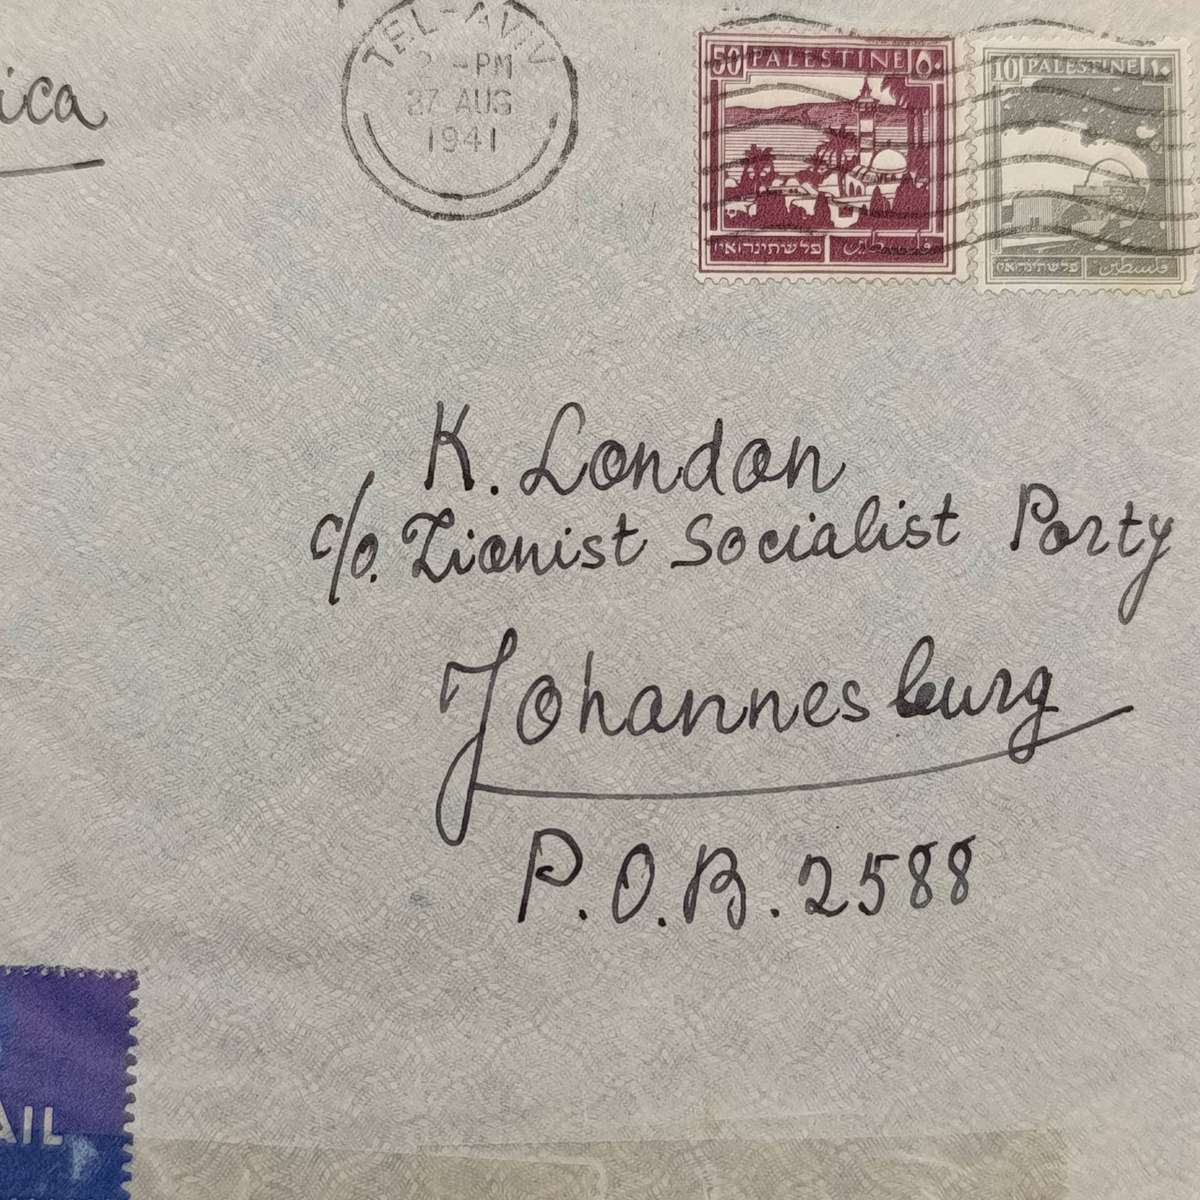 ica
TEL-AVIV
2 -PM
27 AUG
1941
50 PALESTINE ٥٠
פלשתינה א״י فلسطين
10 PALESTINE ١٠
פלשתינה א״י فلسطين
K. London
c/o. Zionist Socialist Party
Johannesburg
P.O.B. 2588
AIL